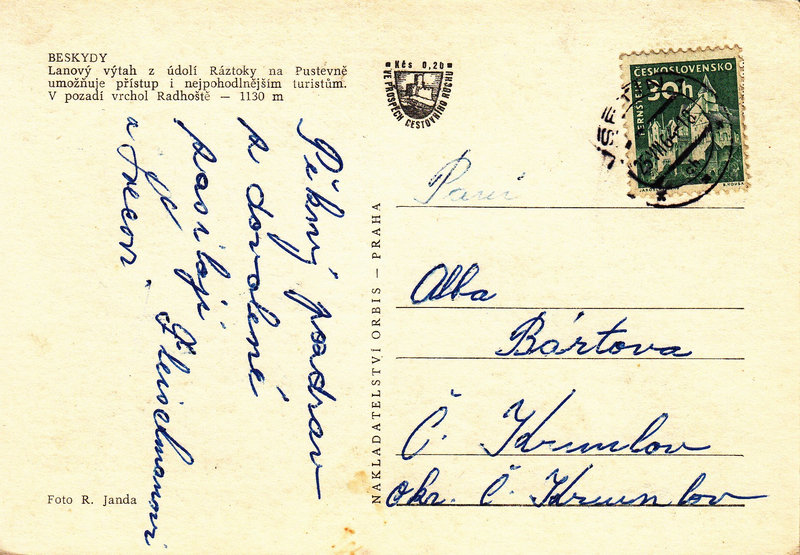 BESKYDY
Lanový výtah z údolí Ráztoky na Pustevně
umožňuje přístup i nejpohodlnějším turistům.
V pozadí vrchol Radhoště — 1130 m
Kčs 0,20
VE PROSPĚCH CESTOVNÍHO RUCHU
ČESKOSLOVENSKO
30h
PERNŠTEJN
Pěkný pozdrav
z dovolené
zasílají
Fleischmanovi
a
NAKLADATELSTVÍ ORBIS — PRAHA
Paní
Alba
Bártova
Č. Krumlov
okr. Č. Krumlov
Foto R. Janda